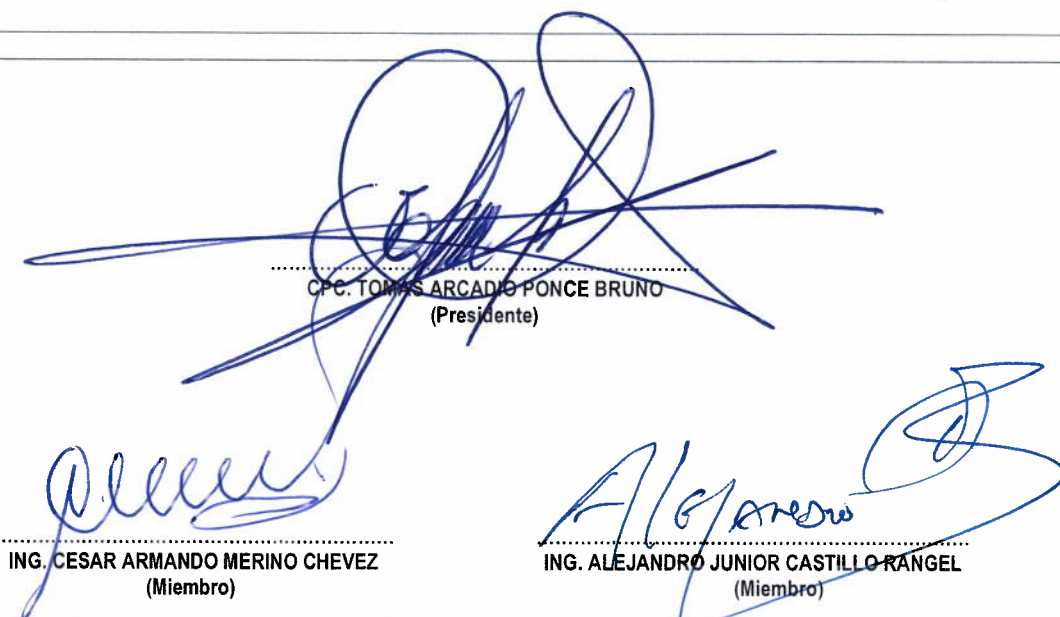 CPC. TOMAS ARCADIO PONCE BRUNO
(Presidente)
Alejandro
ING. CESAR ARMANDO MERINO CHEVEZ
(Miembro)
ING. ALEJANDRO JUNIOR CASTILLO RANGEL
(Miembro)